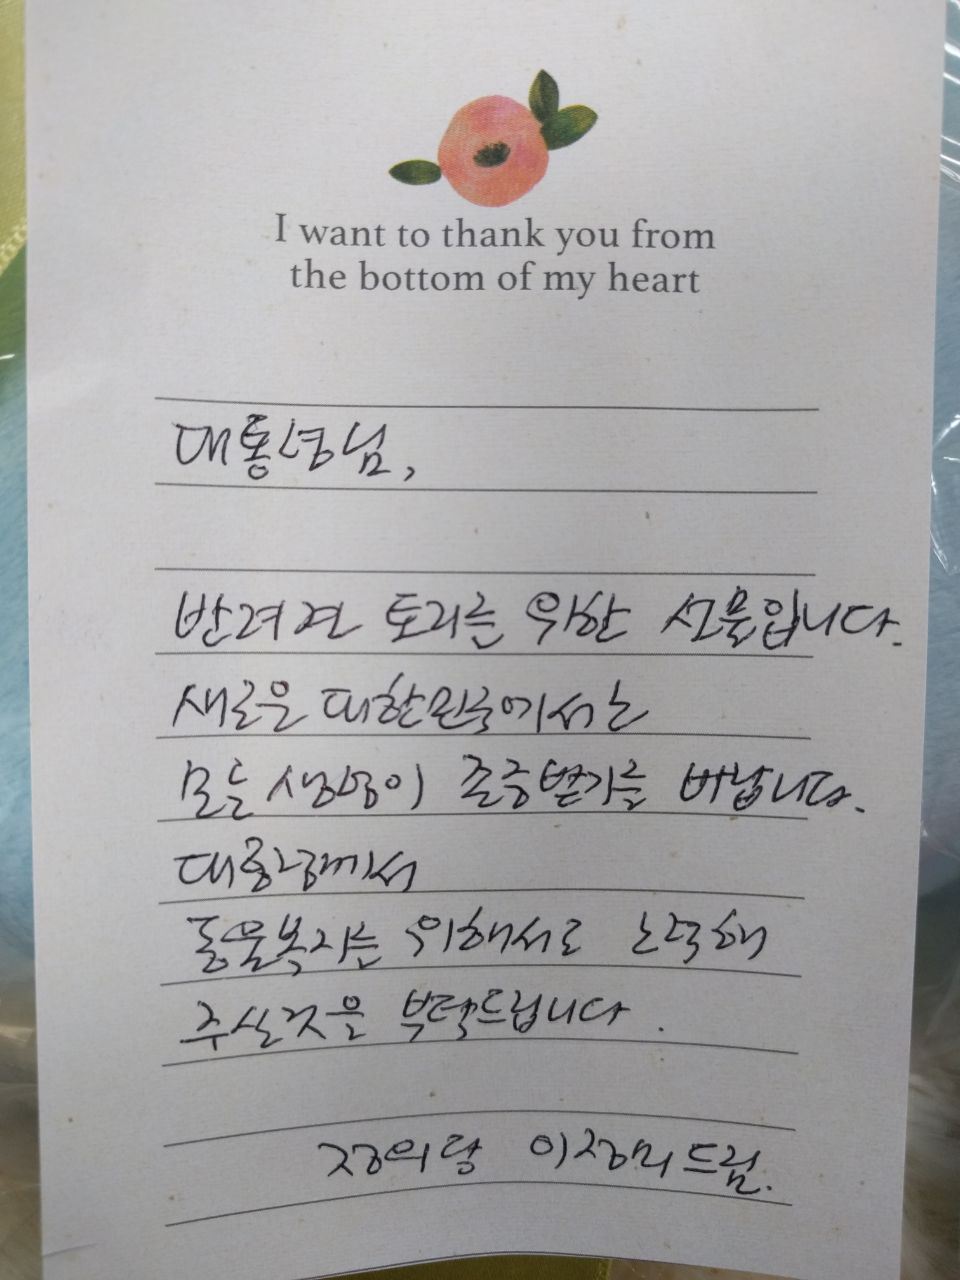 I want to thank you from
the bottom of my heart
대통령님,
반려견 토리를 위한 선물입니다.
새로운 대한민국에서는
모든 생명이 존중받기를 바랍니다.
대통령께서
동물복지를 위해서도 노력해
주실것을 부탁드립니다.
정의당 이정미 드림.